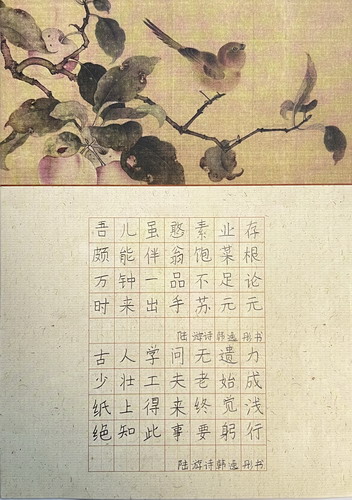 吾儿虽憨素业存
颇能伴翁饱菜根
万钟一品不足论
时来出手苏元元
陆游诗韩 书
古人学问无遗力
少壮工夫老始成
纸上得来终觉浅
绝知此事要躬行
陆游诗韩 书